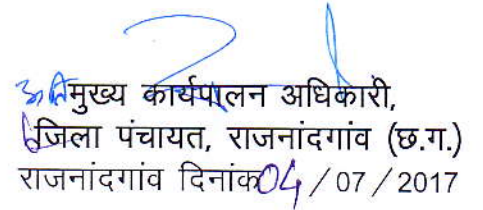 अति मुख्य कार्यपालन अधिकारी,
जिला पंचायत, राजनांदगांव (छ.ग.)
राजनांदगांव दिनांक 04 / 07 / 2017